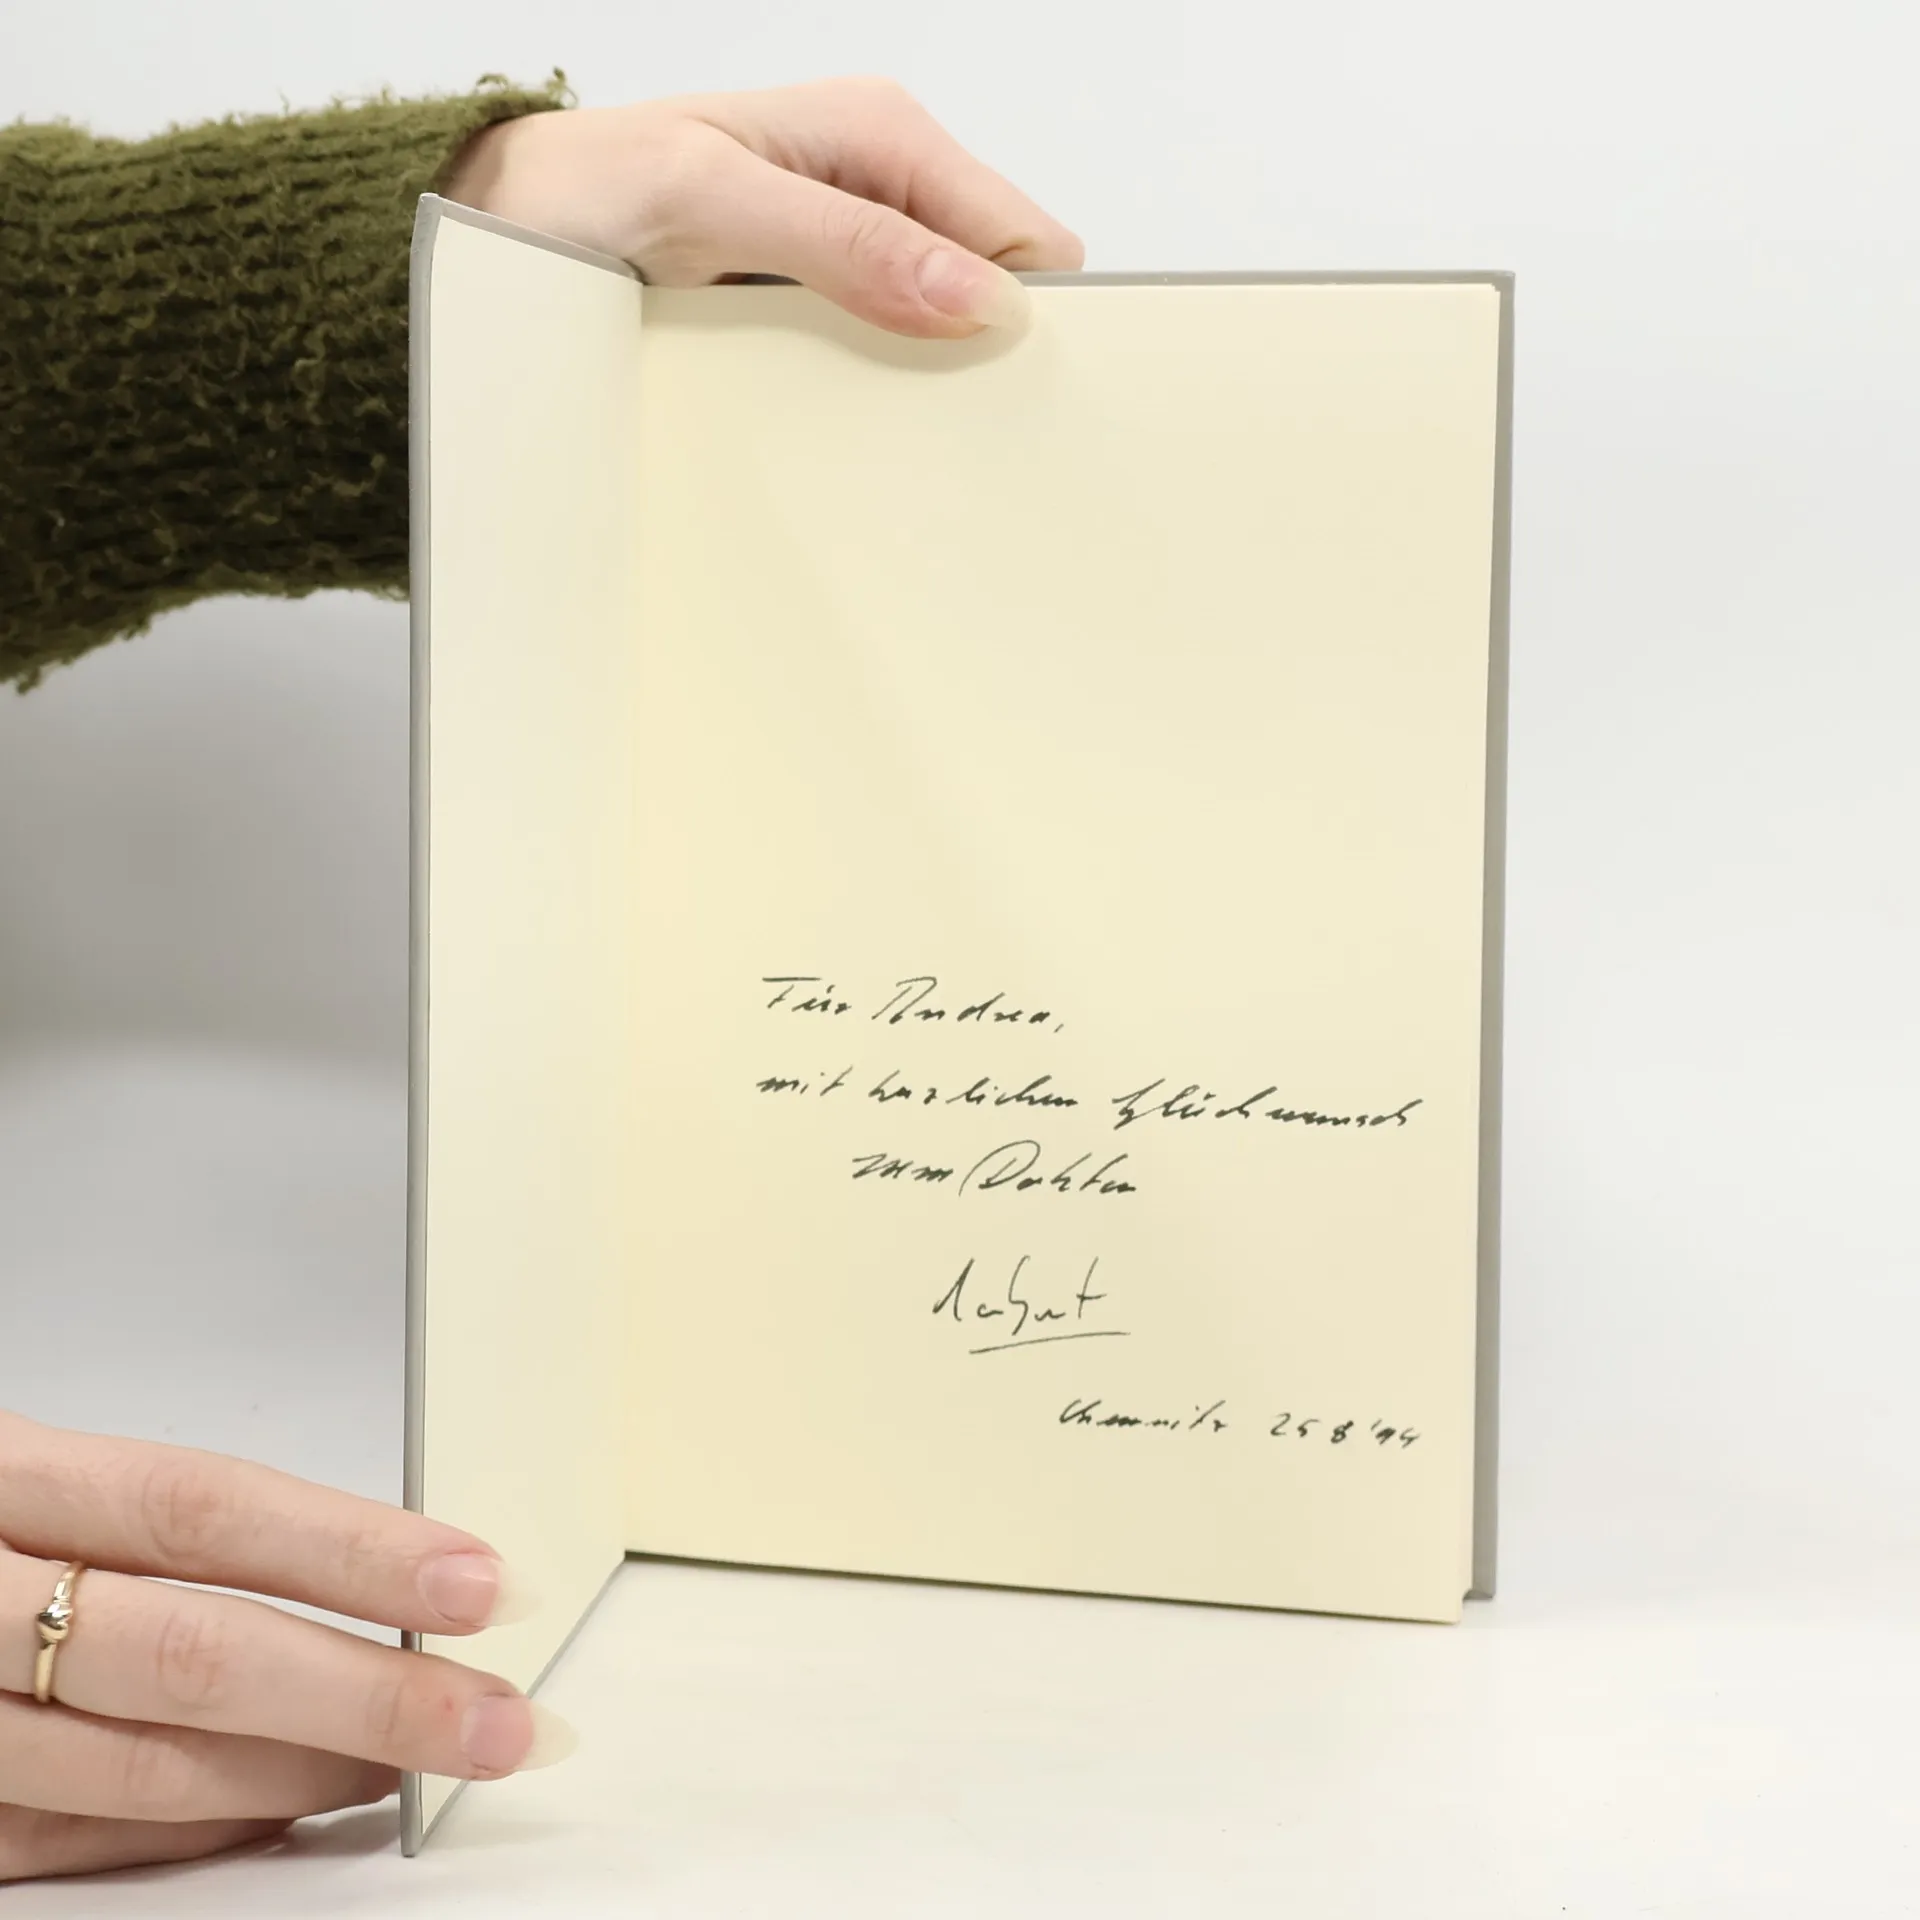 Für Andrea,
mit herzlichem Glückwunsch
zum Doktor
Chemnitz 25 8 '94